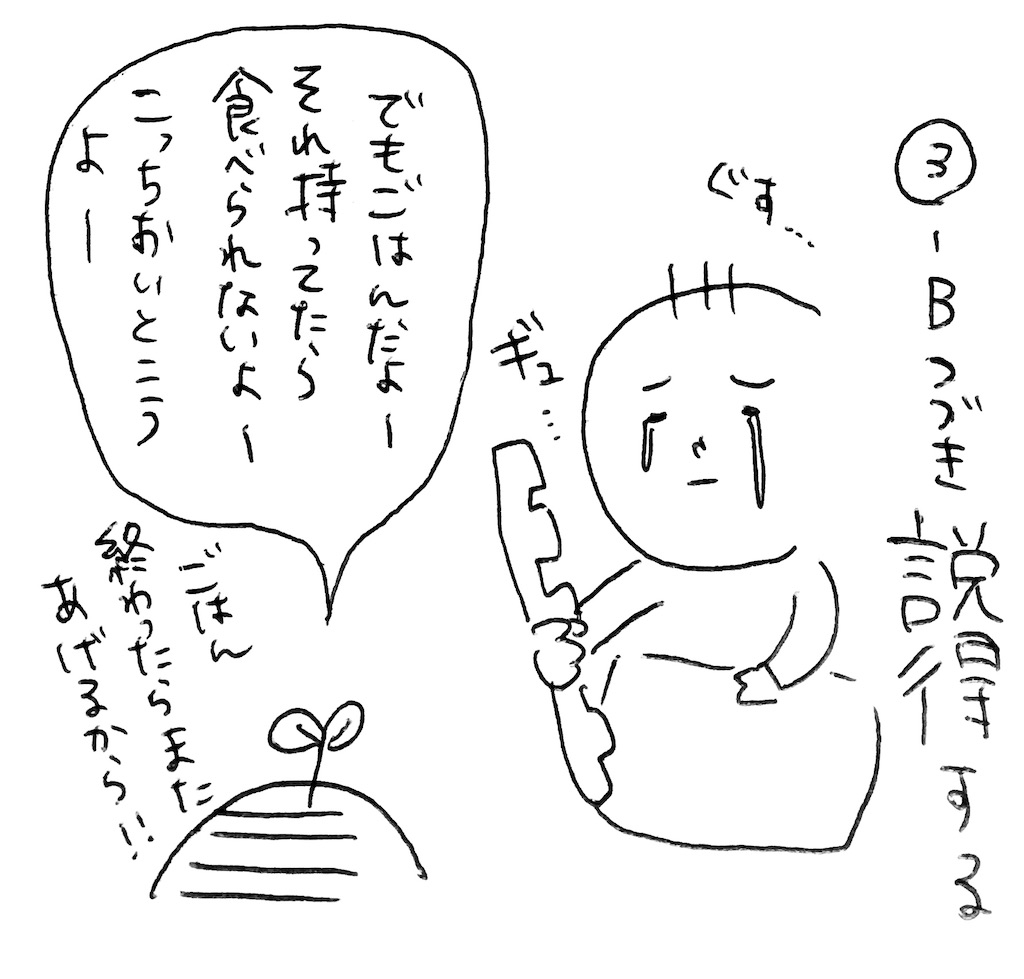 ③-Bつづき 説得する
ぐす…
ギュ…
でもごはんだよー
それ持ってたら
食べられないよー
こっちおいとこう
よー
ごはん
終わったらまた
あげるから!!